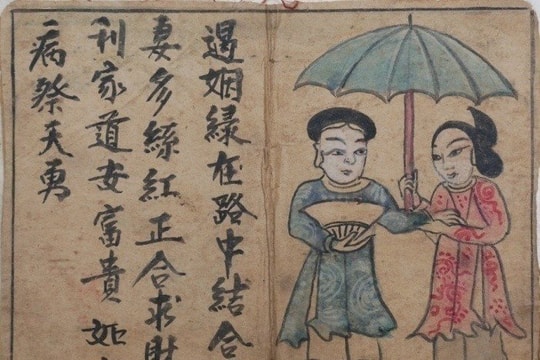 遇姻緣在路中結合
妻多絲紅正合求財
利家道安富貴
病祭夫勇